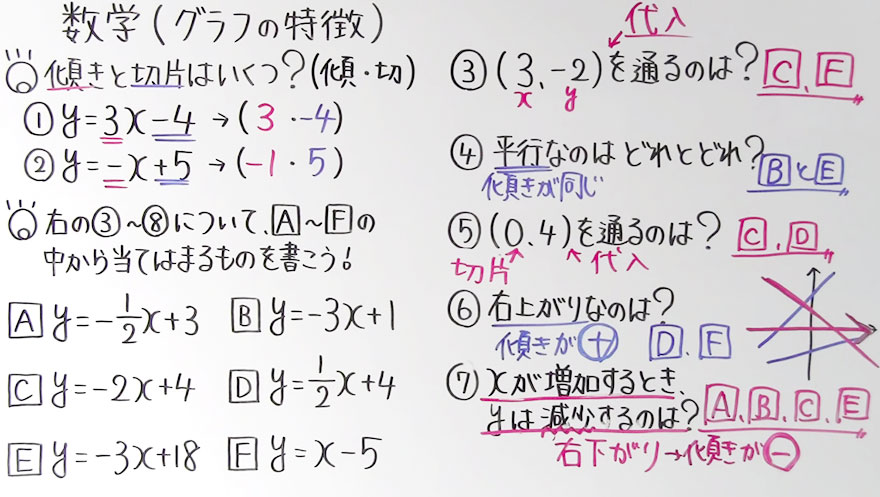 数学(グラフの特徴)
傾きと切片はいくつ?(傾・切)
① y=3x-4 → (3・-4)
② y=-x+5 → (-1・5)
右の③~⑧について、A~Fの
中から当てはまるものを書こう!
A y=-1/2x+3 B y=-3x+1
C y=-2x+4 D y=1/2x+4
E y=-3x+18 F y=x-5
代入
③(3、-2)を通るのは? C、F
x y
④平行なのはどれとどれ?
傾きが同じ BとE
⑤(0、4)を通るのは? C、D
切片 代入
⑥右上がりなのは?
傾きが+ D、F
⑦xが増加するとき、
yは減少するのは? A、B、C、E
右下がり→傾きが-